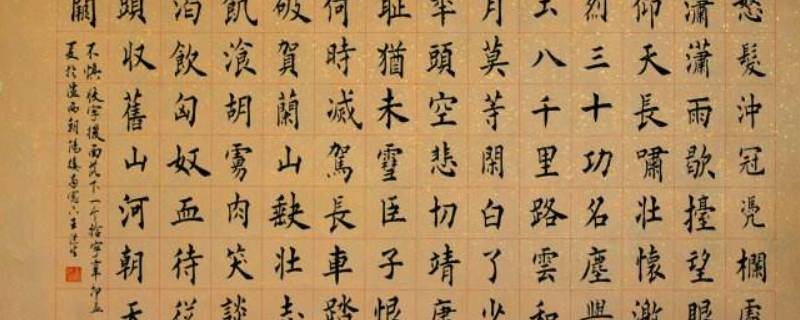 怒髮沖冠凭欄處
瀟瀟雨歇擡望眼
仰天長嘯壯懷激
烈三十功名塵與
土八千里路雲和
月莫等閑白了少
年頭空悲切靖康
恥猶未雪臣子恨
何時滅駕長車踏
破賀蘭山缺壯志
飢飡胡虜肉笑談
渴飲匈奴血待從
頭收舊山河朝天
闕
不慎字後面落下一个拾字辛卯
夏於朝陽樓